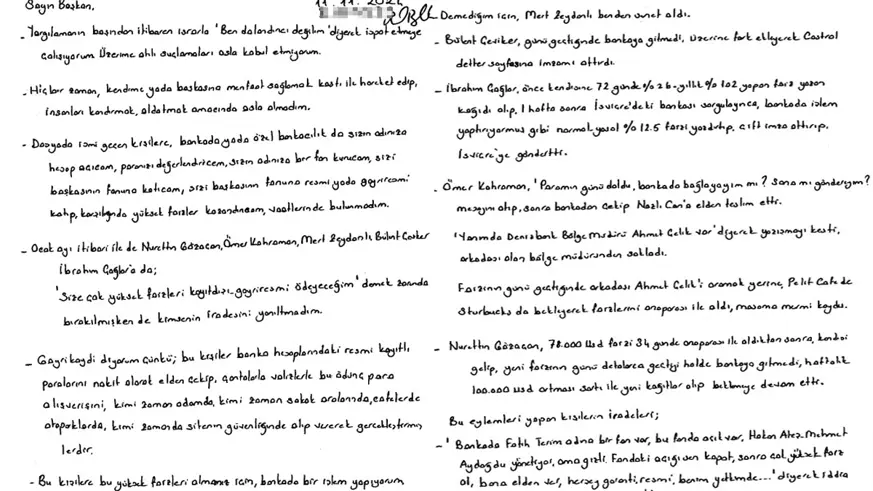 Sayın Başkan,
11.11.2024
- Yargılamanın başından itibaren ısrarla 'Ben dolandırıcı değilim' diyerek ispat etmeye
çalışıyorum Üzerime atılı suçlamaları asla kabul etmiyorum.
- Hiçbir zaman, kendime yada başkasına menfaat sağlamak kastı ile hareket edip,
insanları kandırmak, aldatmak amacında asla olmadım.
- Dosyada ismi geçen kişilere, bankada yada özel bankacılık da sizin adınıza
hesap açıcam, paranızı değerlendiricem, sizin adınıza bir fon kurucam, sizi
başkasının fonuna katıcam, sizi başkasının fonuna resmi yada gayriresmi
katıp, karşılığında yüksek faizler kazandırıcam, vaatlerinde bulunmadım.
- Ocak ayı itibari ile de Nurettin Gözaçan, Ömer Kahraman, Mert Zeydanlı Bülent Çeviker
İbrahim Çağlar'a da;
'Size çok yüksek faizleri kayıtdışı-gayriresmi ödeyeceğim' demek zorunda
bırakılmışken de kimsenin iradesini yanıltmadım.
- Gayrikaydi diyorum Çünkü; bu kişiler banka hesaplarındaki resmi kayıtlı
paralarını nakit olarak elden çekip, çantalarla valizlerle bu ödünç para
alışverişini, kimi zaman adamda, kimi zaman sokak aralarında, cafelerde
otoparklarda, kimi zamanda sitenin güvenliğinde alıp vererek gerçekleştirmiş
lerdir.
- Bu kişilere bu yüksek faizleri almanız için, bankada bir işlem yapıyorum
Demediğim için, Mert Zeydanlı benden senet aldı.
- Bülent Çeviker, günü geçtiğinde bankaya gitmedi, üzerine fark ekliyerek Castrol
defter sayfasına imzamı attırdı.
- İbrahim Çağlar, önce kendisine 72 günde %26-yıllık %102 yapan faiz yazan
kağıdı alıp, 1 hafta sonra İsviçre'deki bankası sorgulayınca, bankada işlem
yaptırıyormuş gibi normal yasal %12.5 faizi yazdırtıp, çift imza attırıp,
İsviçre'ye gönderttti.
- Ömer Kahraman, 'Paramın günü doldu, bankada bağlayayım mı? Sana mı göndereyim?
mesajını atıp, sonra bankadan çekip Nazlı Can'a elden teslim etti.
'Yanımda Denizbank Bölge Müdürü Ahmet Çelik var' diyerek yazışmayı kesti,
arkadaşı olan bölge müdüründen sakladı.
Faizinin günü geçtiğinde arkadaşı Ahmet Çelik'i aramak yerine, Pelit Cafe de
Sturbucks da bekliyerek faizlerini anaparası ile aldı, masama mermi koydu.
- Nurettin Gözaçan, 78.000 Usd faizi 34 günde anaparası ile aldıktan sonra, kendisi
gelip, yeni faizinin günü defalarca geçtiği halde bankaya gitmedi, haftalık
100.000 usd artması şartı ile yeni kağıtlar alıp beklmeye devam etti.
Bu eylemleri yapan kişilerin iradeleri;
- 'Bankada Fatih Terim adına bir fon var, bu fonda açık var, Hakan Ateş-Mehmet
Aydoğdu yönetiyor, ama gizli. Fondaki açığı sen kapat, sonra çok yüksek faiz
al, bana elden ver, herşey garanti, resmi, benim yetkimde...' diyerek